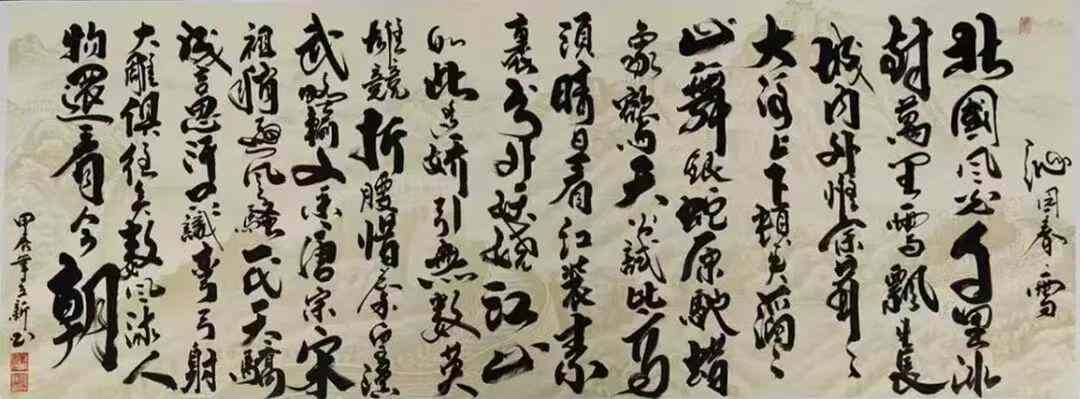 沁园春·雪
北國风光千里冰
封萬里雪飄望長
城内外惟余莽々
大河上下頓失滔々
山舞银蛇原馳蜡
象欲与天公試比高
須晴日看红装素
裹分外妖娆江山
如此多娇引無数英
雄競折腰惜秦皇漢
武略输文采唐宗宋
祖稍逊风骚一代天驕
成吉思汗只識弯弓射
大雕俱往矣数风流人
物還看今朝
甲辰年立新书